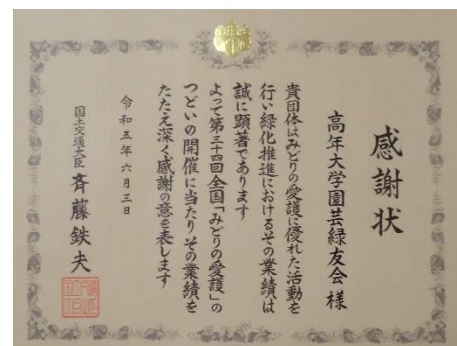 感謝状
高年大学園芸緑友会 様
貴団体はみどりの愛護に優れた活動を
行い緑化推進におけるその業績は
誠に顕著であります
よって第三十四回全国「みどりの愛護」の
つどいの開催に当たりその業績を
たたえ深く感謝の意を表します
令和五年六月三日
国土交通大臣 斉藤鉄夫